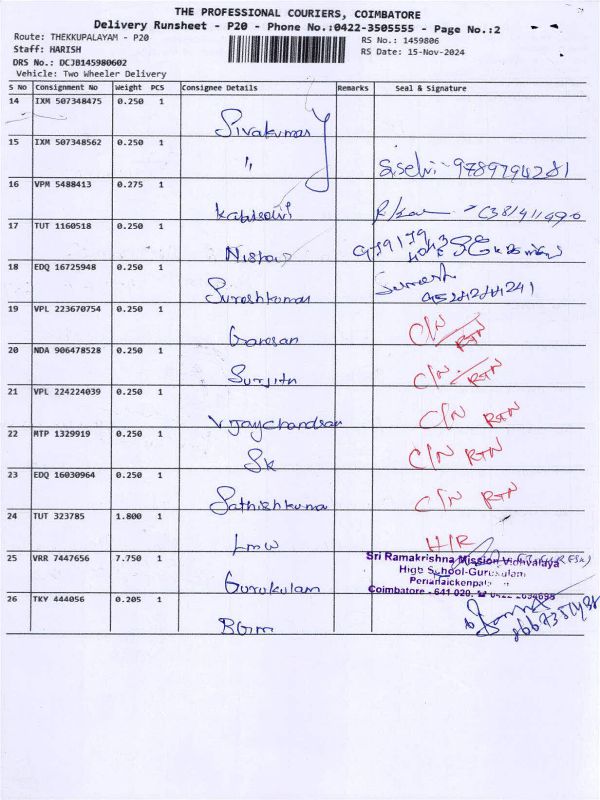 THE PROFESSIONAL COURIERS, COIMBATORE
Delivery Runsheet - P20 - Phone No.:0422-3505555 - Page No.:2
Route: THEKKUPALAYAM - P20
RS No.: 1459806
Staff: HARISH
RS Date: 15-Nov-2024
DRS No.: DCJB145980602
Vehicle: Two Wheeler Delivery
S No Consignment No Weight PCS Consignee Details Remarks Seal & Signature
14 IXM 507348475 0.250 1 Sivakumar
15 IXM 507348562 0.250 1 " 9789794281
16 VPM 5488413 0.275 1
17 TUT 1160518 0.250 1
18 EDQ 16725948 0.250 1 Sureshkumar Suresh
19 VPL 223670754 0.250 1 Ganesan C/N RTN
20 NDA 906478528 0.250 1 Surjith C/N RTN
21 VPL 224224039 0.250 1 Vijaychandran C/N RTN
22 MTP 1329919 0.250 1 SK C/N RTN
23 EDQ 16030964 0.250 1 Sathishkuma C/N RTN
24 TUT 323785 1.800 1 LMW H/R
25 VRR 7447656 7.750 1 Gurukulam
Sri Ramakrishna Mission Vidhyalaya
High School-Gurukulam
Coimbatore - 641 020.
26 TKY 444056 0.205 1 BGM